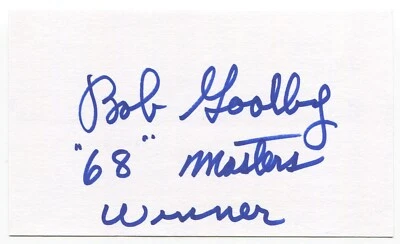 Bob Goalby
"68" Masters
Winner